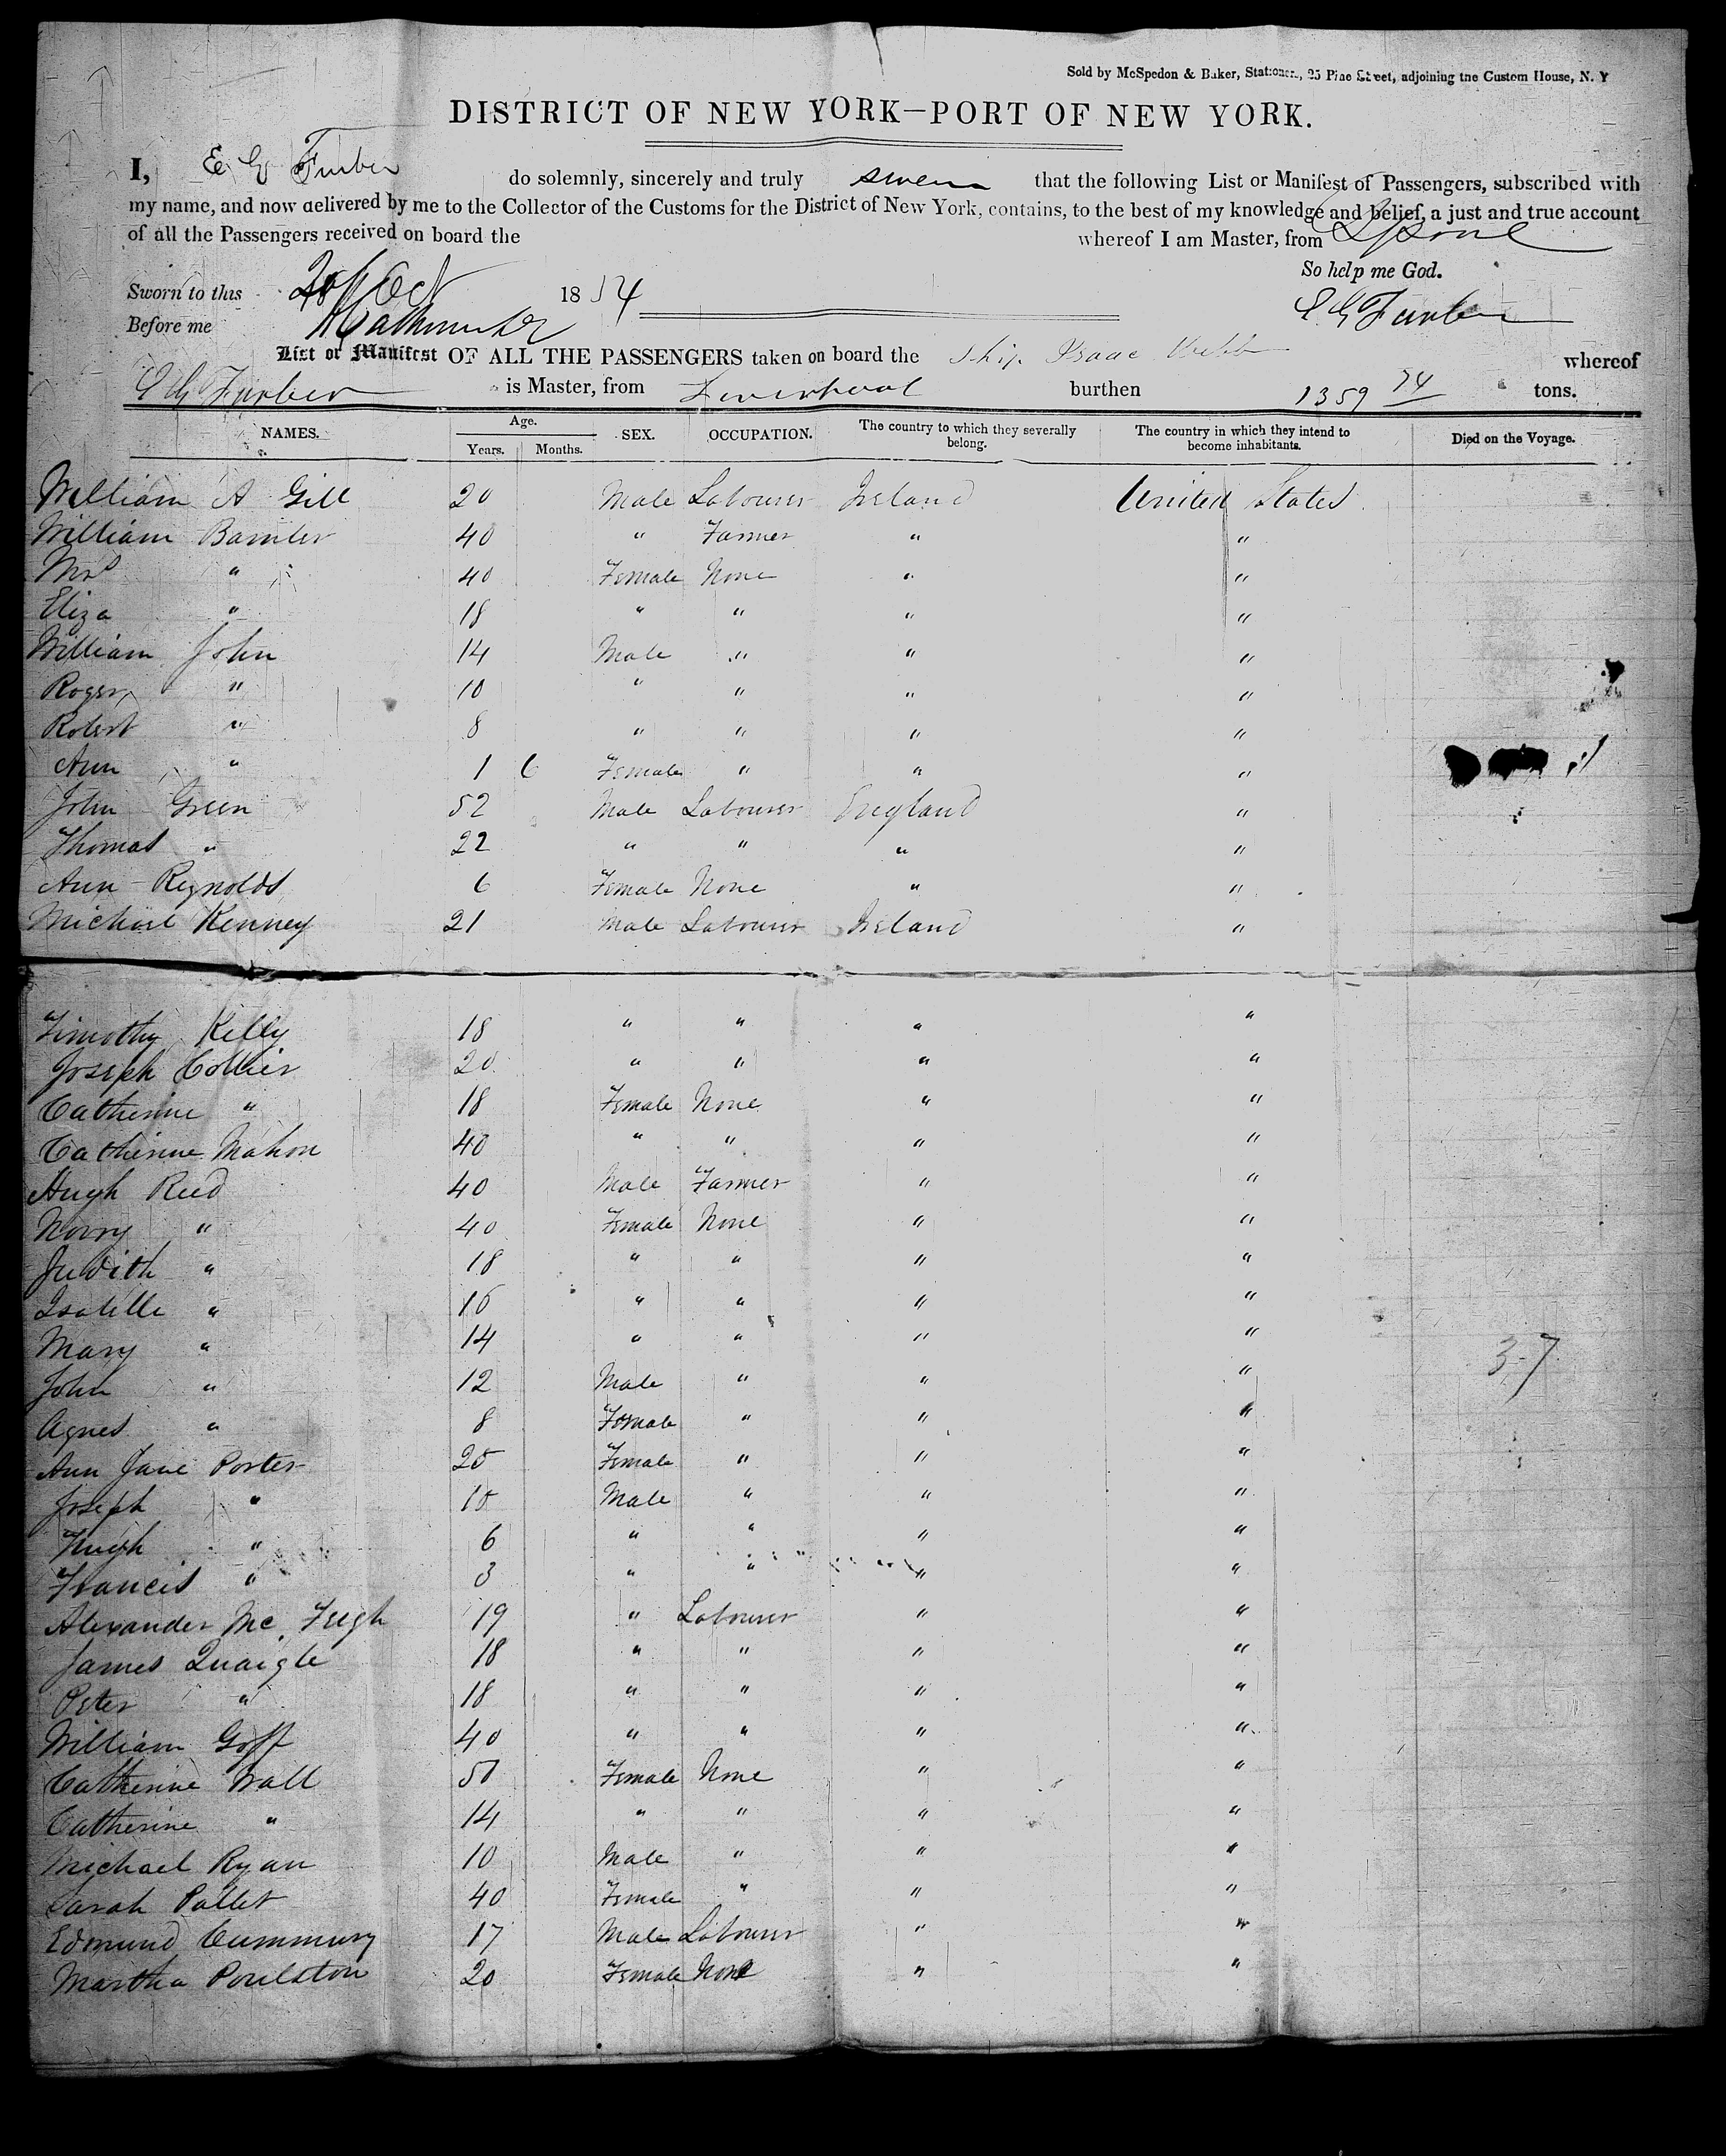 Sold by McSpedon & Baker, Stationers, 25 Pine Street, adjoining the Custom House, N. Y
DISTRICT OF NEW YORK—PORT OF NEW YORK.
I, E G Furber do solemnly, sincerely and truly swear that the following List or Manifest of Passengers, subscribed with
my name, and now delivered by me to the Collector of the Customs for the District of New York, contains, to the best of my knowledge and belief, a just and true account
of all the Passengers received on board the whereof I am Master, from Lpool
So help me God.
Sworn to this Oct 1854
Before me E G Furber
List or Manifest OF ALL THE PASSENGERS taken on board the Ship Isaac Webb whereof
E G Furber is Master, from Liverpool burthen 1359 74 tons.
NAMES. Age. Years. Months. SEX. OCCUPATION. The country to which they severally belong. The country in which they intend to become inhabitants. Died on the Voyage.
William A Gill 20 Male Labourer Ireland United States
William Bamler 40 " Farmer " "
Mrs " 40 Female None " "
Eliza " 18 " " " "
William John 14 Male " " "
Roger " 10 " " " "
Robert " 8 " " " "
Ann " 1 6 Female " " "
John Green 52 Male Labourer England "
Thomas " 22 " " " "
Ann Reynolds 6 Female None " "
Michael Kenney 21 Male Labourer Ireland "
Timothy Kelly 18 " " " "
Joseph Collier 20 " " " "
Catherine " 18 Female None " "
Catherine Mahon 40 " " " "
Hugh Reed 40 Male Farmer " "
Norry " 40 Female None " "
Judith " 18 " " " "
Isabella " 16 " " " "
Mary " 14 " " " " 37
John " 12 Male " " "
Agnes " 8 Female " " "
Ann Jane Porter 25 Female " " "
Joseph " 10 Male " " "
Hugh " 6 " " " "
Francis " 3 " " " "
Alexander Mc Fugh 19 " Labourer " "
James Quaigle 18 " " " "
Peter " 18 " " " "
William Goff 40 " " " "
Catherine Wall 50 Female None " "
Catherine " 14 " " " "
Michael Ryan 10 Male " " "
Sarah Pallet 40 Female " " "
Edmund Cummury 17 Male Labourer " "
Martha Poulston 20 Female None " "